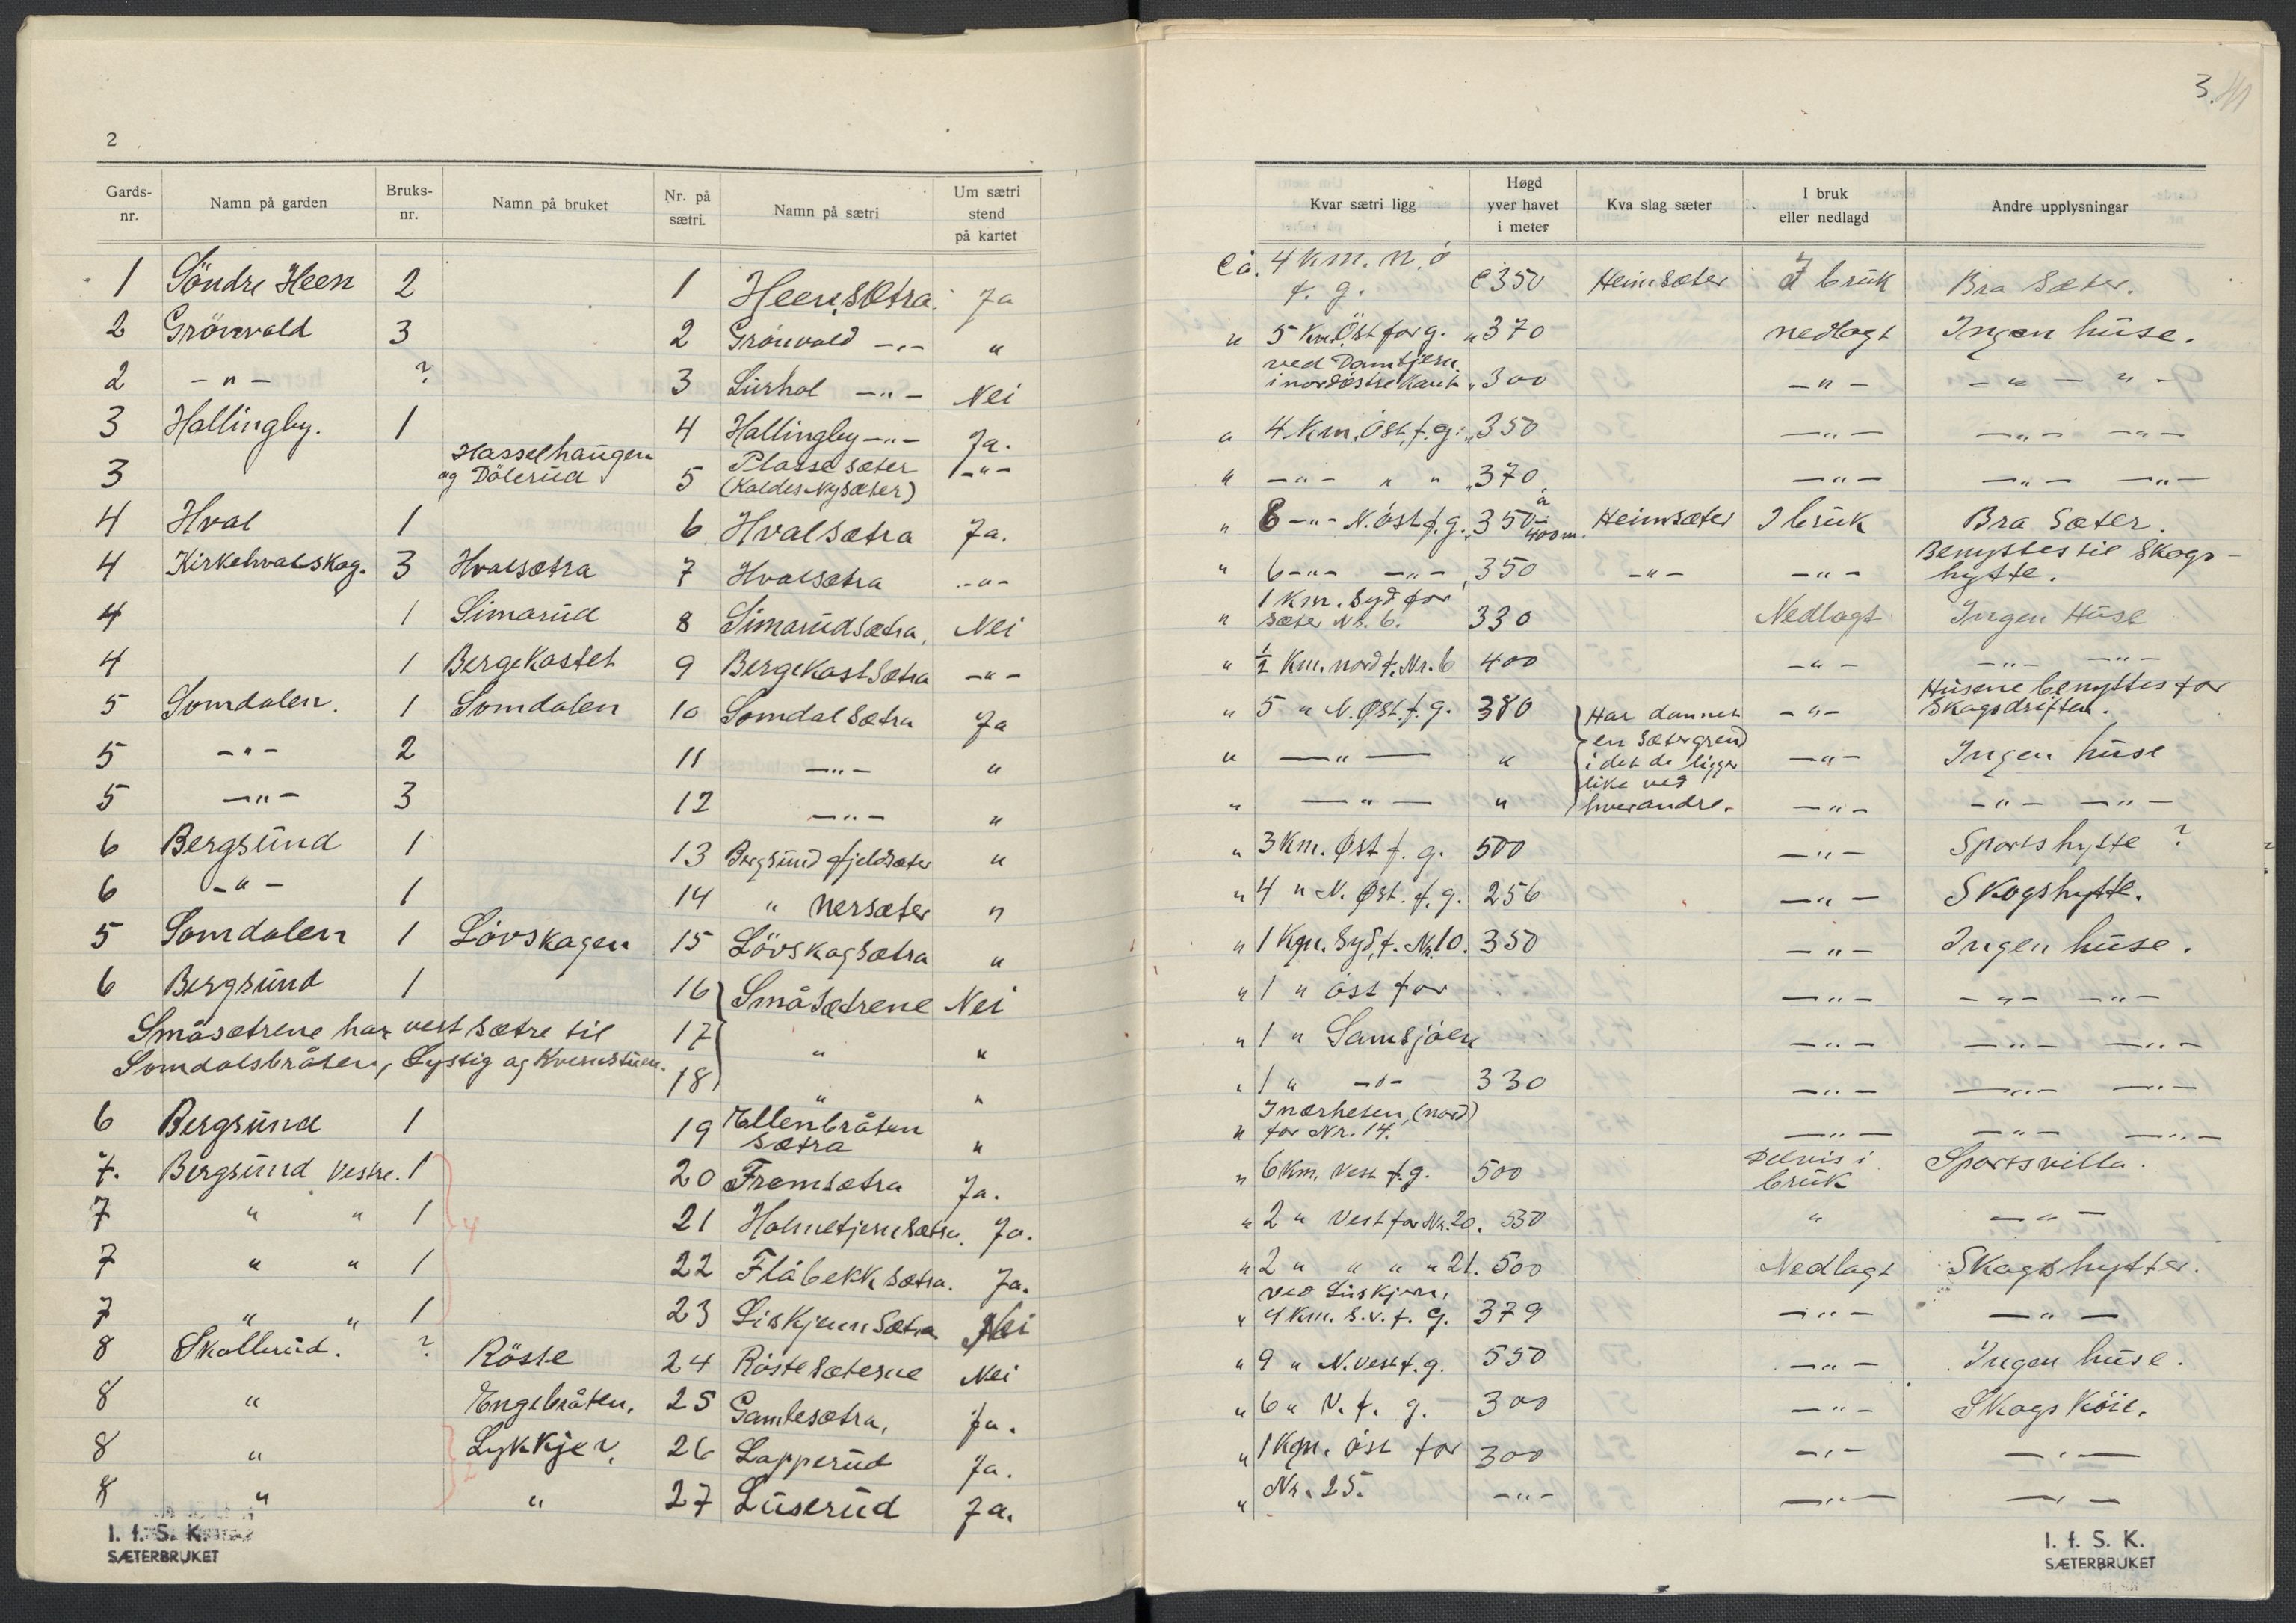 2
Gards-nr. Namn på garden Bruks-nr. Namn på bruket Nr. på sætri. Namn på sætri Um sætri stend på kartet
1 Söndre Heen 2 1 Heensætra. Ja
2 Grönvold 3 2 Grönvold -„- "
2 -"- ? 3 Lürhol -"- Nei
3 Hallingby. 1 4 Hallingby -"- Ja.
3 Hasselhaugen og Dölerud 5 Plassesæter (Kaldes Nysæter) -"-
4 Hval 1 6 Hvalsætra Ja.
4 Kirkehvalskog. 3 Hvalsætra 7 Hvalsætra -"-
4 1 Simarud 8 Simarudsætra, Nei
4 1 Bergekastet 9 Bergekastsætra -"-
5 Somdalen. 1 Somdalen 10 Somdalsætra Ja
5 -"- 2 11 -"- "
5 -"- 3 12 -"- "
6 Bergsund 1 13 Bergsund fjeldsæter "
6 -"- 1 14 " Nersæter "
5 Somdalen 1 Lövskagen 15 Lövskagsætra "
6 Bergsund 1 16 Småsætrene Nei
Småsætrene har vest sætre til 17 " "
Somdalsbråten, Lystig og Kvernstuen. 18 " "
6 Bergsund 1 19 Ellenbråten sætra "
7. Bergsund Vestre. 1 20 Fremsætra Ja.
7 " " 1 4 21 Holmetjernsætra. Ja.
7 " " 1 22 Flåbekksætra. Ja.
7 " " 1 23 Liskjernsætra Nei
8 Skollerud. ? Rösse 24 Röstesæterne Nei
8 " Engebråten. 25 Gamlesætra, Ja.
8 " Lykkjer, 26 Lapperud Ja.
8 " " 2 27 Luserud Ja.
I. f. S. K.
SÆTERBRUKET
3.
Kvar sætri ligg Høgd yver havet i meter Kva slag sæter I bruk eller nedlagd Andre upplysningar
Ca. 4 km. n. ö f. g. c 350 Heimsæter I bruk Bra Sæter.
" 5 km. Öst for g. " 370 nedlagt Ingen huse.
ved Damtjern i nordöstre kant " 300 -"- -"- "-
" 4 km. öst. f. g. " 350 -"- -"- -"-
" -"- " " " 370 -"- -"- -"-
" 8 -"- N. öst f. g. " 350 à 400 m. Heimsæter I bruk Bra Sæter.
" 6 -"- -"- 350 -"- -"- Benyttes til Skogshytte.
" 1 km. Syd for Sæter Nr. 6. 330 Nedlagt Ingen Huse
" ½ km. nord f. Nr. 6 400 -"- -"- -"-
" 5 " N. Øst. f. g. 380 Har dannet en sætergrend i det de ligger like ved hverandre. -"- Husene benyttes for Skogsdriften.
" -"- " -"- Ingen huse
" -"- " -"- -"- -"-
" 3 km. Øst f. g. 500 -"- Sportshytte ?
" 4 " N. Øst. f. g. 256 -"- Skogshytte.
" 1 km. Syd, f. Nr. 10. 350 -"- Ingen huse.
" 1 " öst for -"- -"- -"-
" 1 " Samsjöen -"- -"- -"-
" 1 " -"- 330 -"- -"- -"-
" I nærheten (nord) for Nr. 14. -"- -"- -"-
" 6 km. Vest f. g. 500 Delvis i bruk Sportsvilla.
" 2 " Vest for Nr. 20. 530 " -"-
" 2 " " " " 21. 500 Nedlagt Skogshytter.
ved Liskjern,
" 4 km. S. v. f. g. 379 -"- -"-
" 9 " N. vest f. g. 550 -"- Ingen huse.
" 6 " N. f. g. 300 -"- Skogs Köie.
" 1 km. öst for 300 -"- -"-
" Nr. 25. -"- -"- -"-
I. f. S. K.
SÆTERBRUKET